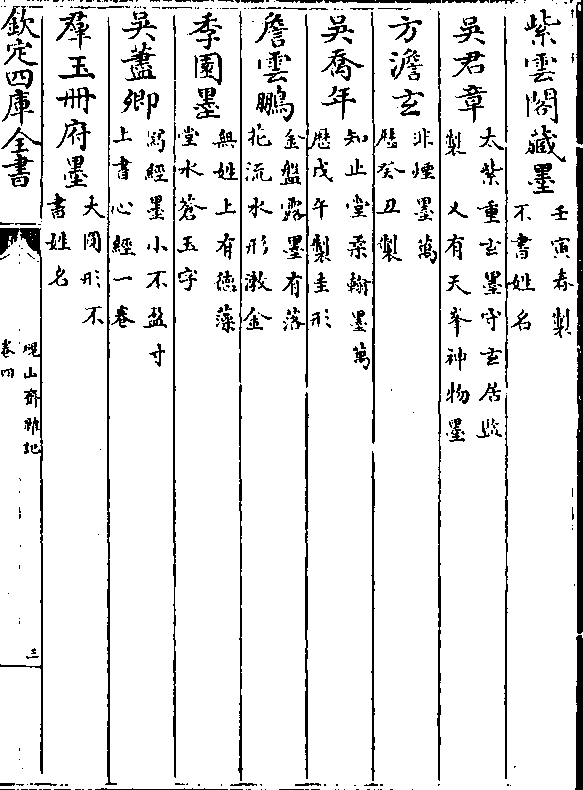 紫雲閣藏墨
壬寅春製
不書姓名
吳君章
太紫重玄墨守玄居監
製 又有天峯神物墨
方澹玄
非煙墨萬
厯癸丑製
吳喬年
知止堂柔翰墨萬
厯戊午製圭形
詹雲鵬
金盤露墨有落
花流水形漱金
季園墨
無姓上有德藻
堂水蒼玉字
吳藎卿
寫經墨小不盈寸
上書心經一卷
羣玉冊府墨
大圓形不
書姓名
欽定四庫全書
硯山齋雜記
卷四
三